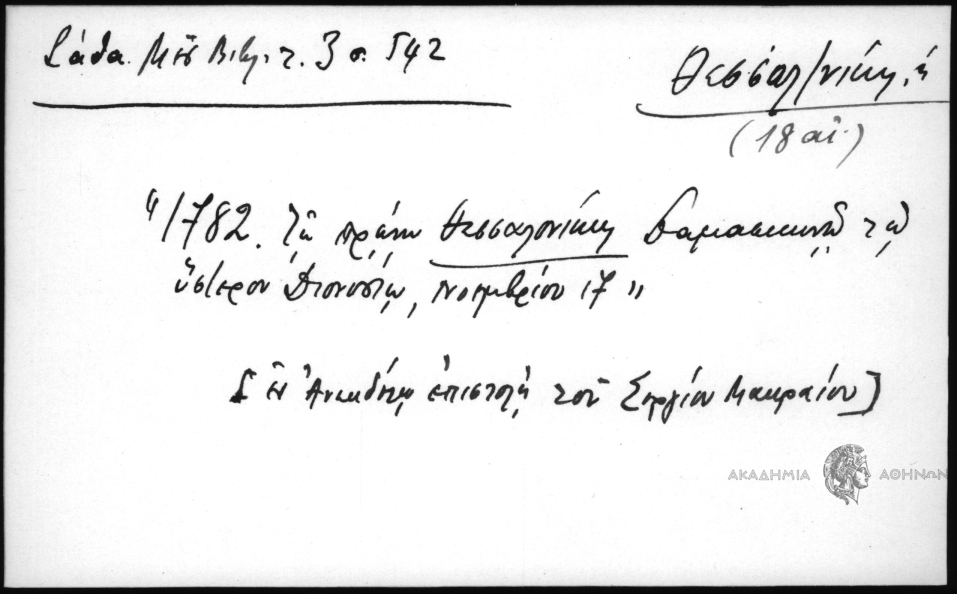 Σάθα Μεσ. Βιβλ. τ. 3 σ. 542
Θεσσαλ/νίκη, ἡ
(18 αἰ.)
"1782. Τῷ πρώην Θεσσαλονίκης Δαμασκηνῷ τῷ
ὕστερον Διονυσίῳ, νοεμβρίου 17"
[ἐν Ἀνεκδότῳ ἐπιστολῇ τοῦ Σεργίου Μακραίου]
ΑΚΑΔΗΜΙΑ ΑΘΗΝΩΝ